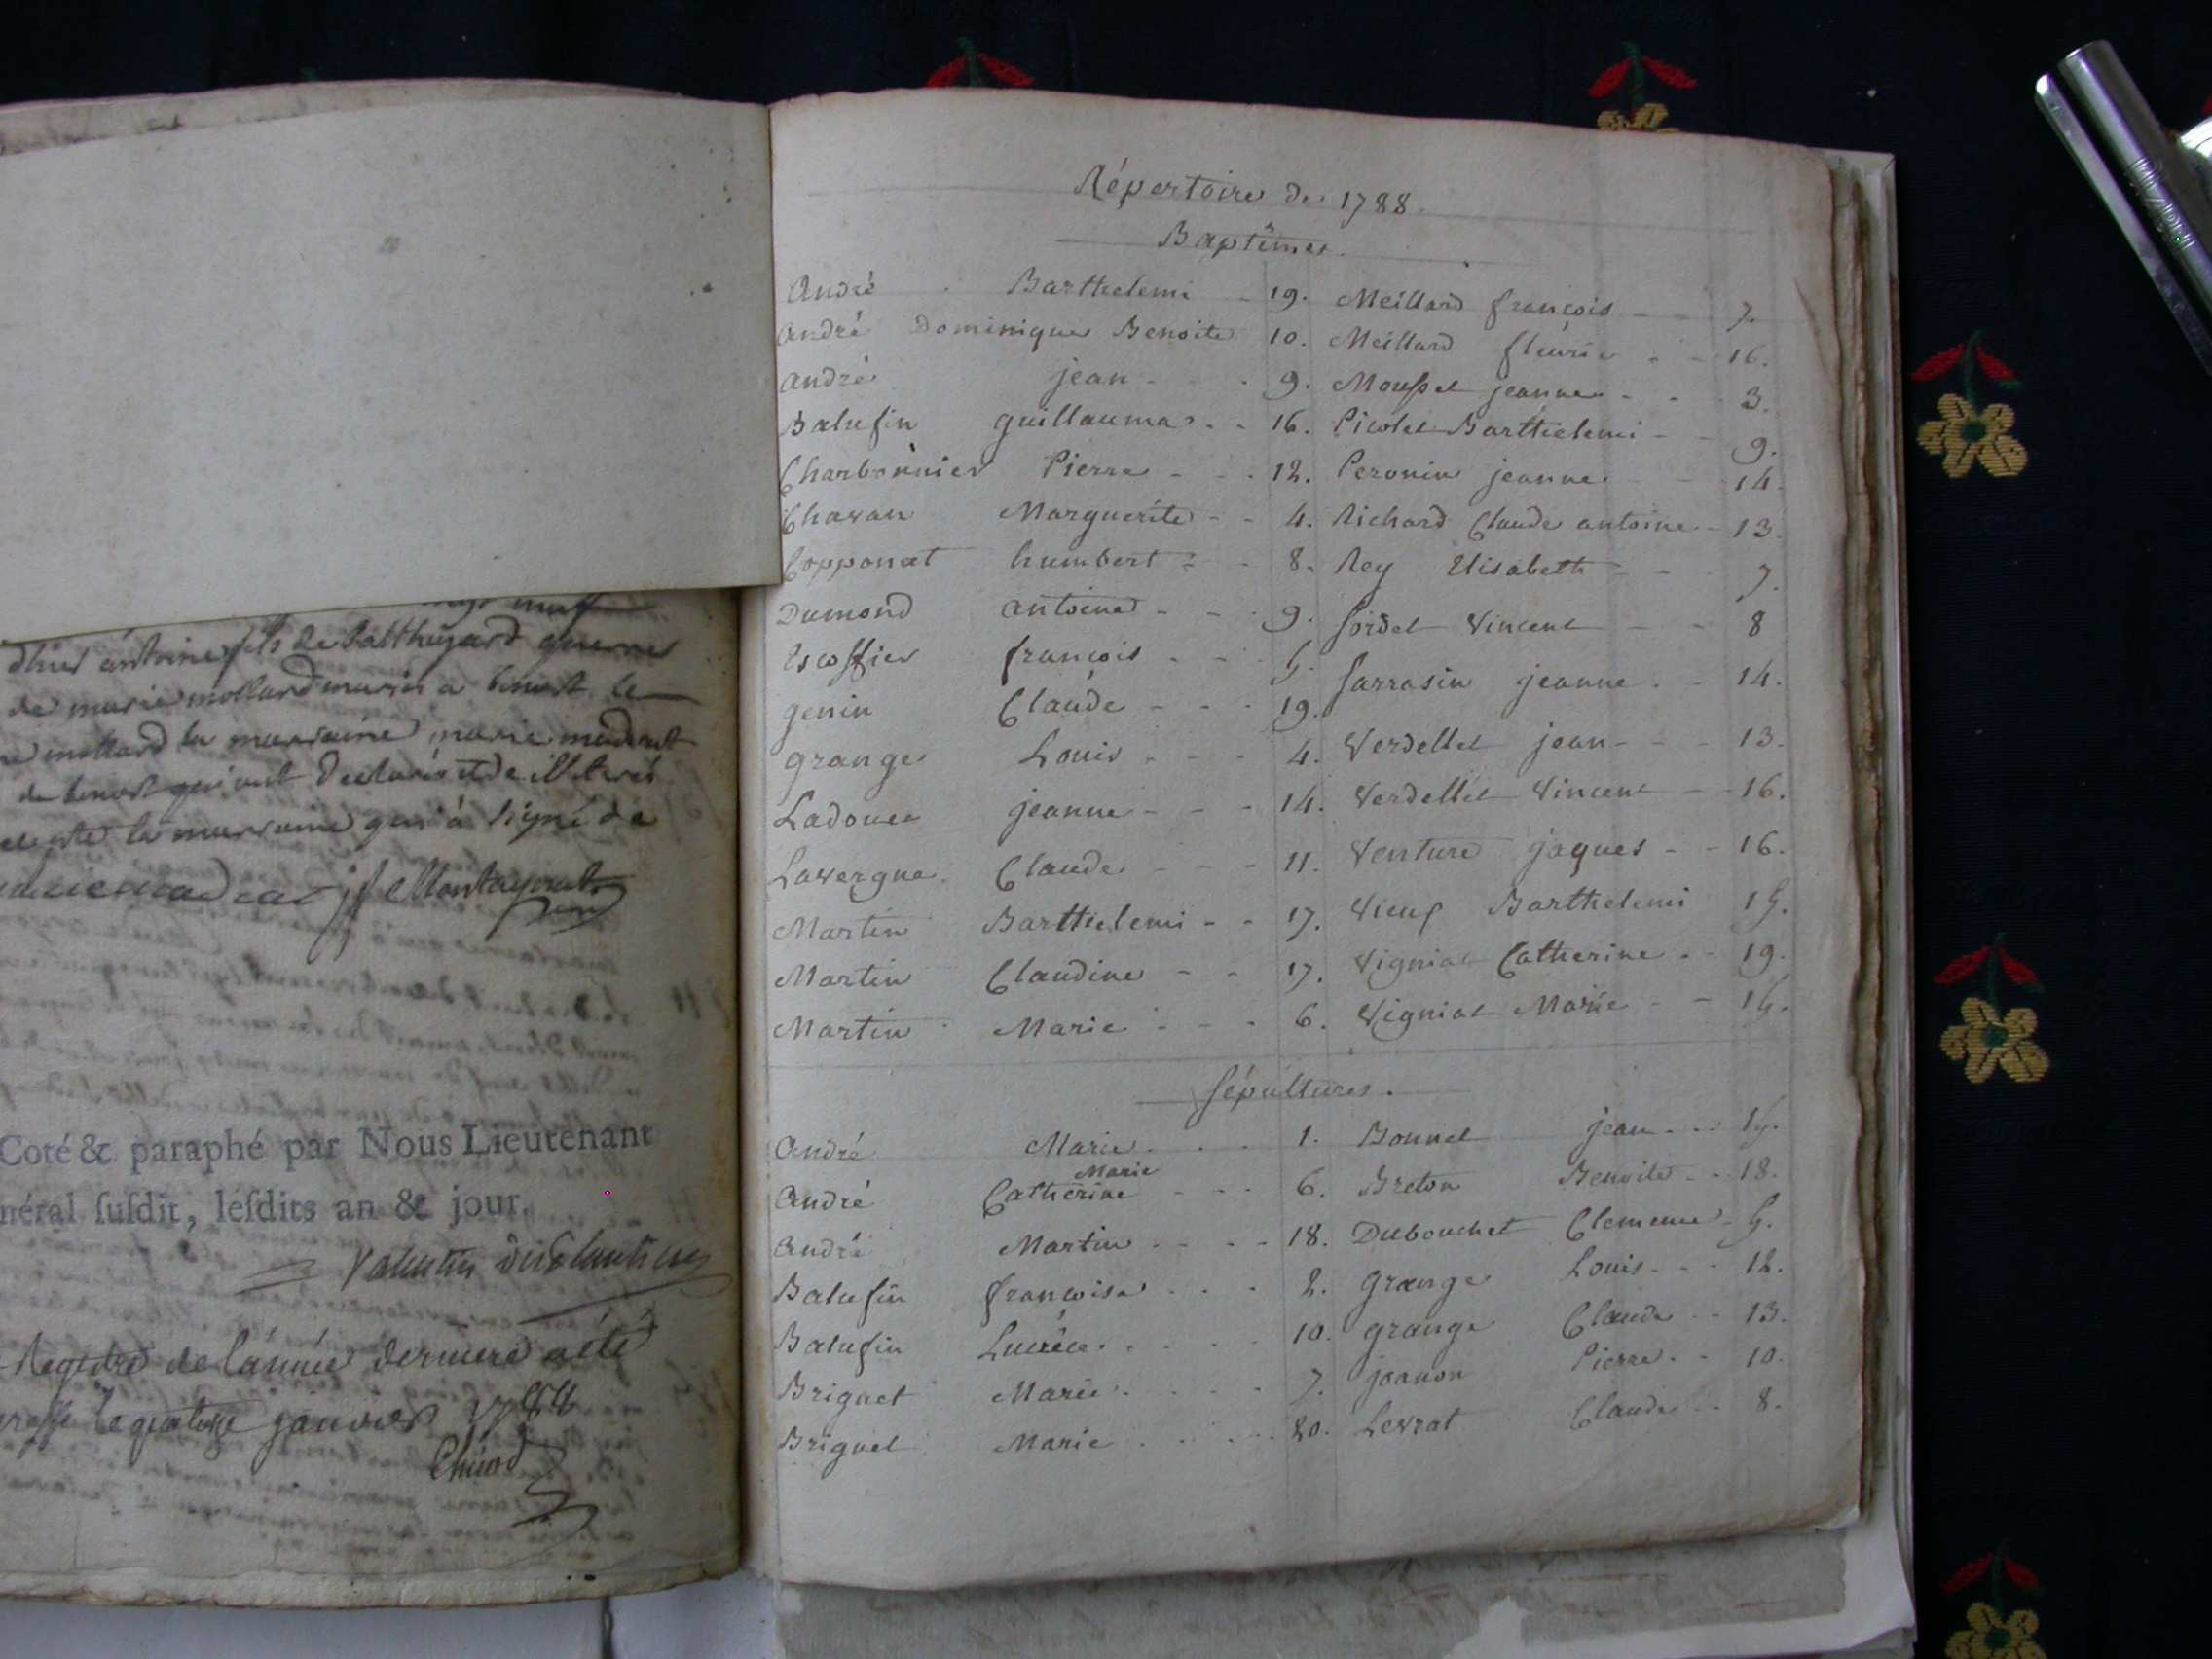 antoine fils de
de marie mollard
mollard la marraine marie
la marraine qui a signé de
Coté & paraphé par Nous Lieutenant
néral susdit, lesdits an & jour.
Registre de l'année derniere a été
janvier
Répertoire de 1788.
Baptêmes.
André Barthelemi 19.
André Dominique Benoite 10.
André jean 9.
Balufin guillaume 16.
Charbonnier Pierre 12.
Chavan Marguerite 4.
Copponat humbert 8.
Dumond antoine 9.
Escoffier françois 5.
genin Claude 19.
grange Louis 4.
Ladouce jeanne 14.
Lavergne Claude 11.
Martin Barthelemi 17.
Martin Claudine 17.
Martin Marie 6.
Meillard françois 7.
Meillard fleurie 16.
Mousset jeanne 3.
Picolet Barthelemi 9.
Peronin jeanne 14.
Richard Claude antoine 13.
Rey Elisabeth 7.
Sordet Vincent 8
Sarrasin jeanne 14.
Verdellet jean 13.
Verdellet Vincent 16.
Venture jaques 16.
Vieux Barthelemi 15.
Vigniat Catherine 19.
Vigniat Marie 15.
Sépultures.
André Marie 1.
Marie
André Catherine 6.
André Martin 18.
Balufin françoise 2.
Balufin Lucrèce 10.
Briguet Marie 7.
Briguet Marie 20.
Bonnet jean 15.
Breton Benoite 18.
Dubouchet Clemence 5.
Grange Louis 12.
grange Claude 13.
joanon Pierre 10.
Levrat Claude 8.